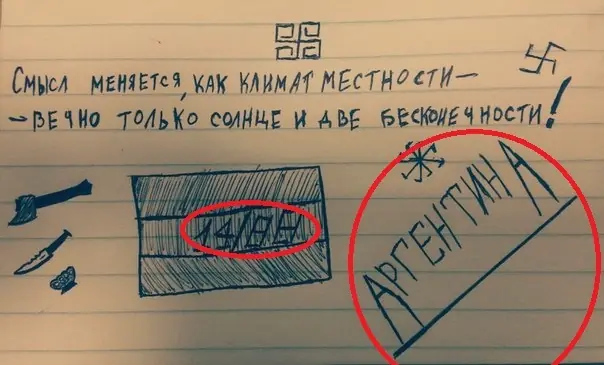 Смысл меняется, как климат местности —
— вечно только солнце и две бесконечности!
14/88
Аргентина